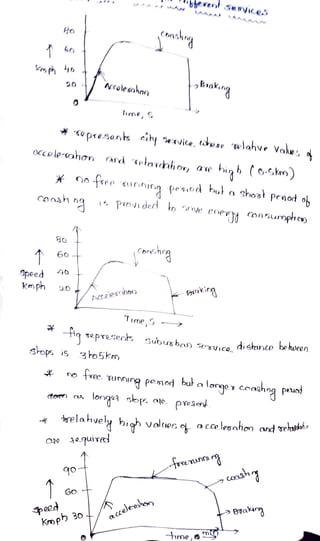 different services
80
60
40
20
0
↑
kmph
Coasting
Acceleration
Braking
Time, S
* represents city service, where relative values of
acceleration and retardation, are high (0.5km)
* no free running period but a short period of
coasting is provided to save energy consumption
80
60
40
20
↑
Speed
Kmph
Coasting
Acceleration
Braking
Time, S →
* fig represents suburban service, distance between
stops is 3to5km
* no free running period but a longer coasting period
as longer stops are present
* Relatively high values of acceleration and retardation
are required
90
60
30
0
↑
Speed
Kmph
freerunning
coasting
acceleration
Braking
time, min